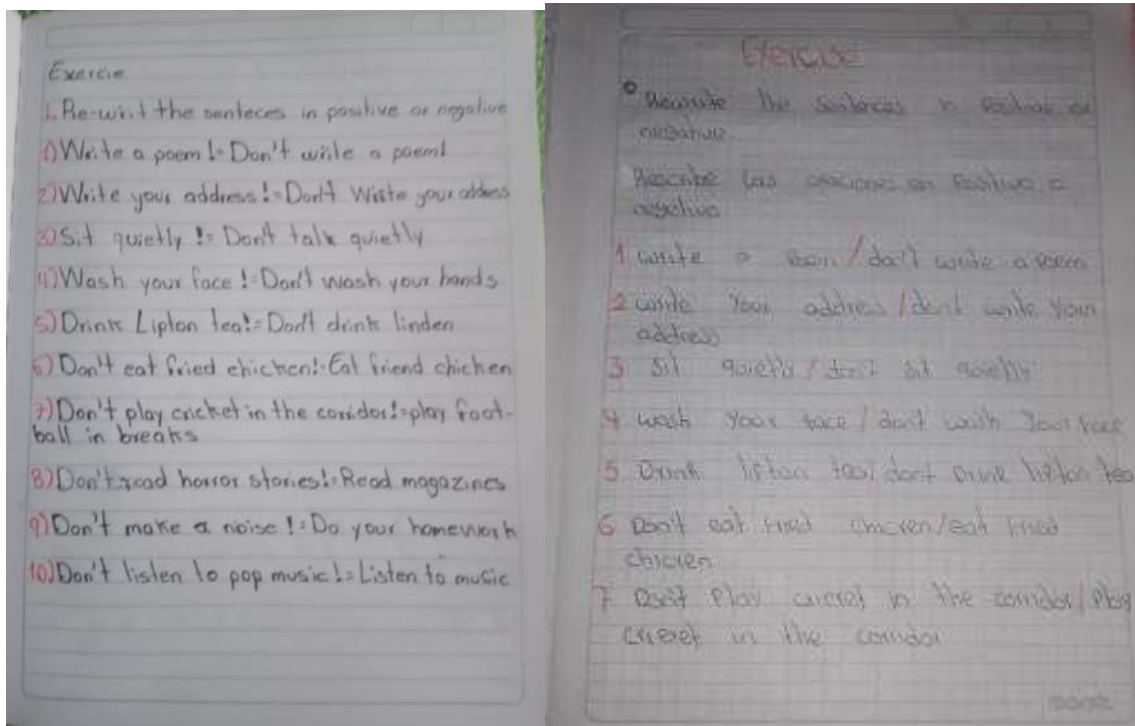 Exercie
1. Re-writ the senteces in positive or negative
1) Write a poem != Don't write a poem!
2) Write your address!= Don't Write your address
3) Sit quietly != Don't talk quietly
4) Wash your face != Don't wash your hands
5) Drink Lipton tea!= Don't drink linden
6) Don't eat fried chichen!= Eat friend chichen
7) Don't play cricket in the corridor!= play foot-
ball in breaks
8) Don't read horror stories!= Read magazines
9) Don't make a noise != Do your homework
10) Don't listen to pop music != Listen to music
Exercise
Rewrite the sentences in positive or
negative
Rescribe las oraciones en positivo o
negativo
1 write a poem / don't write a poem
2 write your address / dont write your
address
3 sit quietly / don't sit quietly
4 wash your face / don't wash your face
5 Drink lipton tea / dont Drink lipton tea
6 Don't eat fried chicren / eat fried
chicren
7 Don't Play cricret in the corridor / Play
cricret in the corridor